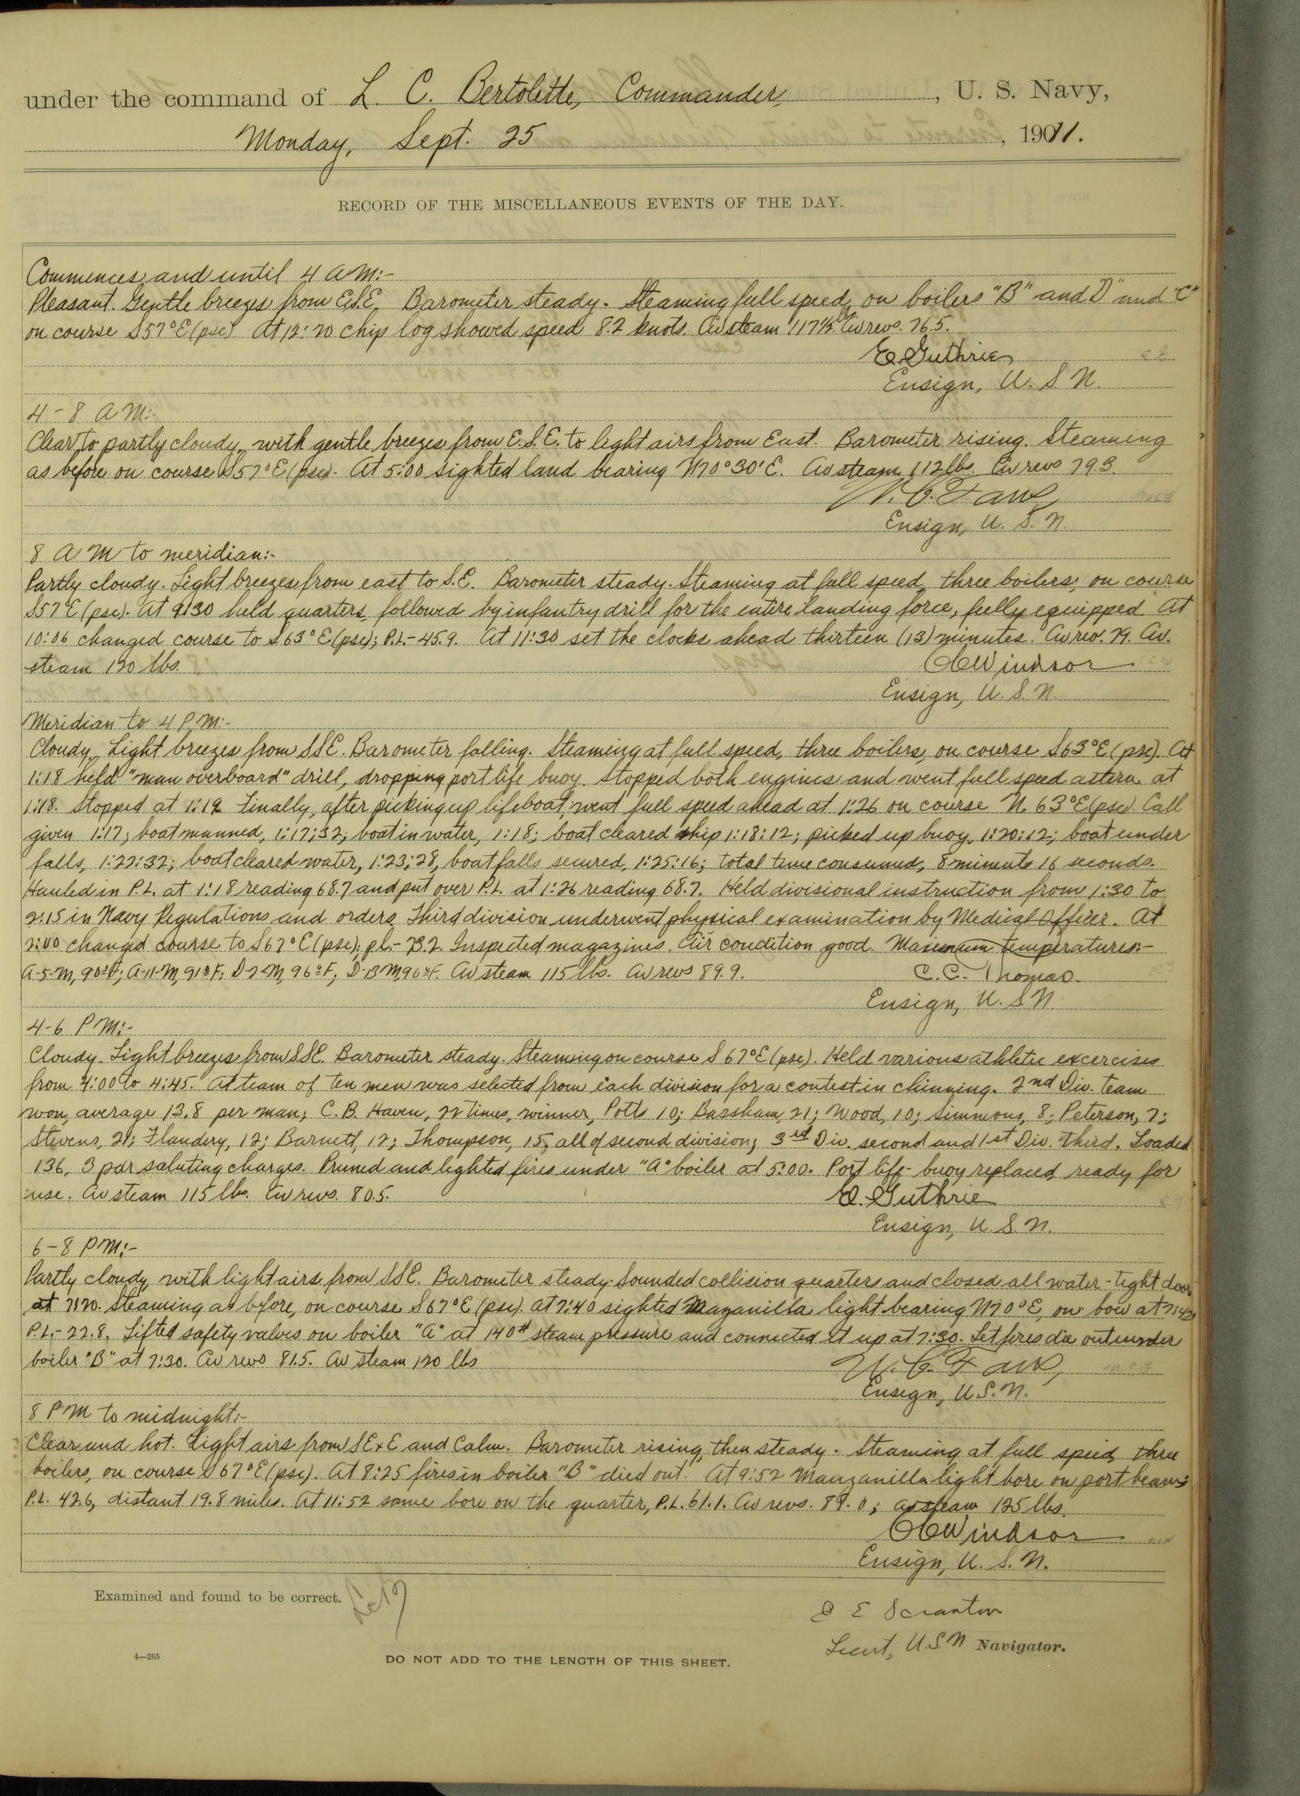 under the command of L. C. Bertolette, Commander, U. S. Navy,
Monday, Sept. 25, 1911.
RECORD OF THE MISCELLANEOUS EVENTS OF THE DAY.
Commences and until 4 A M:-
Pleasant. Gentle breezes from E.S.E. Barometer steady. Steaming full speed, on boilers "B" and "D" and "C"
on course S57°E (psc) At 12:20 chip log showed speed 8.2 knots. Av steam 117½ Av revs. 76.5.
E. Guthrie
Ensign, U. S N.
4-8 A M:-
Clear to partly cloudy, with gentle breezes from E.S.E. to light airs from East. Barometer rising. Steaming
as before on course S57°E (psc). At 5:00 sighted land bearing N70°30'E. Av steam 112 lbs. Av revs 79.3.
Ensign, U. S. N.
8 A M to meridian:-
Partly cloudy. Light breezes from east to S.E. Barometer steady. Steaming at full speed, three boilers, on course
S57°E (psc). At 9:30 held quarters, followed by infantry drill for the entire landing force, fully equipped. At
10:06 changed course to S63°E (psc); P.L.-45.9. At 11:30 set the clocks ahead thirteen (13) minutes. Av rev. 79. Av.
steam 120 lbs.
C Windsor
Ensign, U. S. N.
Meridian to 4 P M:-
Cloudy, Light breezes from SSE. Barometer falling. Steaming at full speed, three boilers, on course S63°E (psc). At
1:18 held "man overboard" drill, dropping port life buoy. Stopped both engines and went full speed astern at
1:18. Stopped at 1:19. Finally, after picking up lifeboat, went full speed ahead at 1:26 on course N. 63°E (psc). Call
given 1:17; boat manned, 1:17:32; boat in water, 1:18; boat cleared ship 1:18:12; picked up buoy, 1:20:12; boat under
falls, 1:22:32; boat cleared water, 1:23:28, boat falls secured, 1:25:16; total time consumed, 8 minents 16 seconds.
Hauled in P.L. at 1:18 reading 68.7 and put over P.L. at 1:26 reading 68.7. Held divisional instruction from 1:30 to
2:15 in Navy Regulations and orders. Third division underwent physical examination by Medical Officer. At
2:00 changed course to S67°E (psc); pl.- 73.2. Inspected magazines. Air condition good. Maximum temperatures:-
A-5-M, 90°F; A-11-M, 91°F; D-2-M, 96°F; D-13-M, 96°F. Av steam 115 lbs. Av revs 89.9.
C. C. Thomas.
Ensign, U. S N.
4-6 P M:-
Cloudy. Light breezes from SSE. Barometer steady. Steaming on course S 67°E (psc). Held various athletic excercises
from 4:00 to 4:45. A team of ten men was selected from each division for a contest in chinning. 2nd Div. team
won, average 13.8 per man; C. B. Haven, 22 times, winner, Potts 10; Bassham, 21; Wood, 10; Simmons, 8; Peterson, 7;
Stevens, 21; Flandery, 12; Barnett, 12; Thompson, 15, all of second division; 3rd Div. second and 1st Div. third. Loaded
136, 3 pdr saluting charges. Primed and lighted fires under "A" boiler at 5:00. Port life-buoy replaced ready for
use. Av steam 115 lbs. Av revs. 80.5.
E. Guthrie
Ensign, U. S. N.
6-8 P M:-
Partly cloudy with light airs from SSE. Barometer steady. Sounded collision quarters and closed all water-tight doors
at 7:20. Steaming as before, on course S 67°E (psc). At 7:40 sighted Mazanilla light bearing N70°E, on bow at 7:42
P.L.-22.8. Lifted safety valves on boiler "A" at 140# steam pressure and connected it up at 7:30. Let fires die out under
boiler "B" at 7:30. Av revs 81.5. Av steam 120 lbs
Ensign, U. S. N.
8 P M to midnight:-
Clear and hot. Light airs from SExE and Calm. Barometer rising, then steady. Steaming at full speed, three
boilers, on course S 67°E (psc). At 8:25 fires in boiler "B" died out. At 9:52 Manzanilla light bore on port beam:
P.L. 42.6, distant 19.8 miles. At 11:52 same bore on the quarter, P.L. 61.1. Av revs. 89.0; av steam 125 lbs.
C Windsor
Ensign, U. S. N.
Examined and found to be correct.
E E Scranton
Lieut, U.S N Navigator.
4—265
DO NOT ADD TO THE LENGTH OF THIS SHEET.